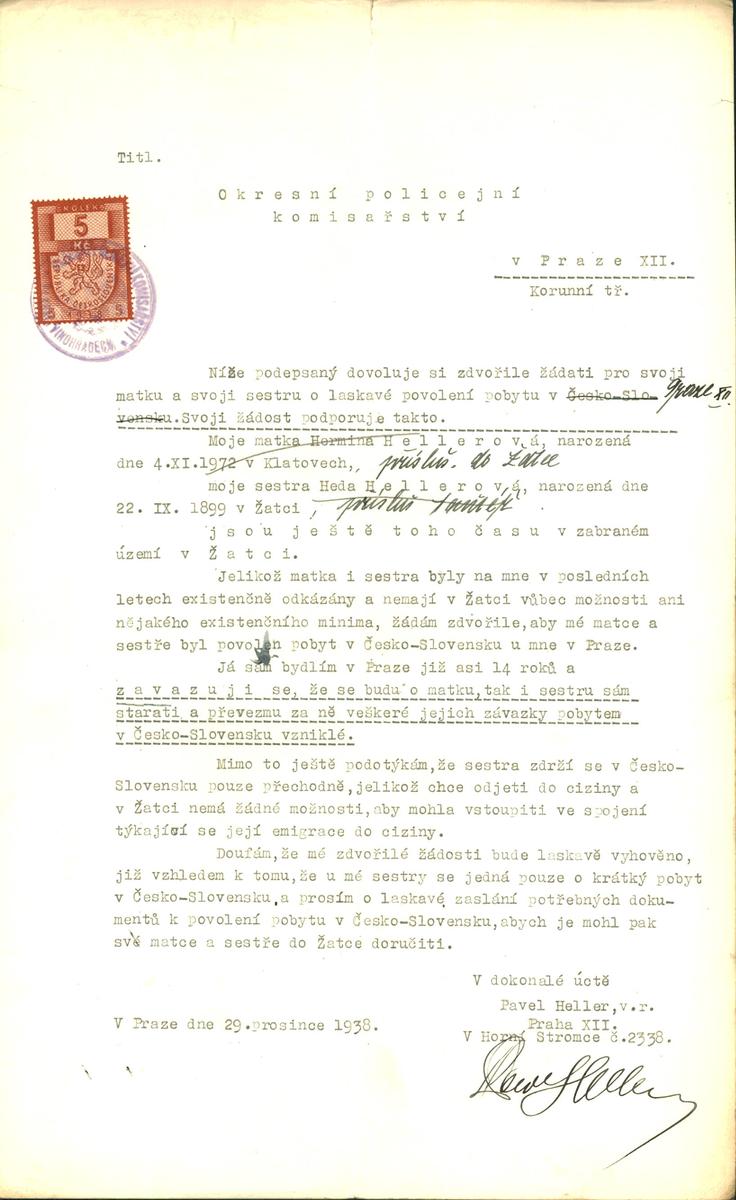 Titl.
O k r e s n í  p o l i c e j n í
k o m i s a ř s t v í
KOLEK
5
Kč
REPUBLIKA ČESKOSLOVENSKÁ
5 1938 5
v P r a z e XII.
Korunní tř.
Níže podepsaný dovoluje si zdvořile žádati pro svoji
matku a svoji sestru o laskavé povolení pobytu v Česko-Slo- Praze XII.
vensku.Svoji žádost podporuje takto.
Moje matka Hermina H e l l e r o v á, narozená
dne 4.XI.1972 v Klatovech,, přísluš. do Žatce
moje sestra Heda H e l l e r o v á, narozená dne
22. IX. 1899 v Žatci, přísluš tamtéž
j s o u  j e š t ě  t o h o  č a s u v zabraném
území v Ž a t c i.
Jelikož matka i sestra byly na mne v posledních
letech existenčně odkázány a nemají v Žatci vůbec možnosti ani
nějakého existenčního minima, žádám zdvořile,aby mé matce a
sestře byl povolen pobyt v Česko-Slovensku u mne v Praze.
Já sám bydlím v Praze již asi 14 roků a
z a v a z u j i se, že se budu o matku,tak i sestru sám
starati a převezmu za ně veškeré jejich závazky pobytem
v Česko-Slovensku vzniklé.
Mimo to ještě podotýkám,že sestra zdrží se v Česko-
Slovensku pouze přechodně,jelikož chce odjeti do ciziny a
v Žatci nemá žádné možnosti,aby mohla vstoupiti ve spojení
týkající se její emigrace do ciziny.
Doufám,že mé zdvořilé žádosti bude laskavě vyhověno,
již vzhledem k tomu,že u mé sestry se jedná pouze o krátký pobyt
v Česko-Slovensku,a prosím o laskavé zaslání potřebných doku-
mentů k povolení pobytu v Česko-Slovensku,abych je mohl pak
své matce a sestře do Žatce doručiti.
V dokonalé úctě
Pavel Heller,v.r.
V Praze dne 29.prosince 1938.
Praha XII.
V Horní Stromce č.2338.
Pavel Heller